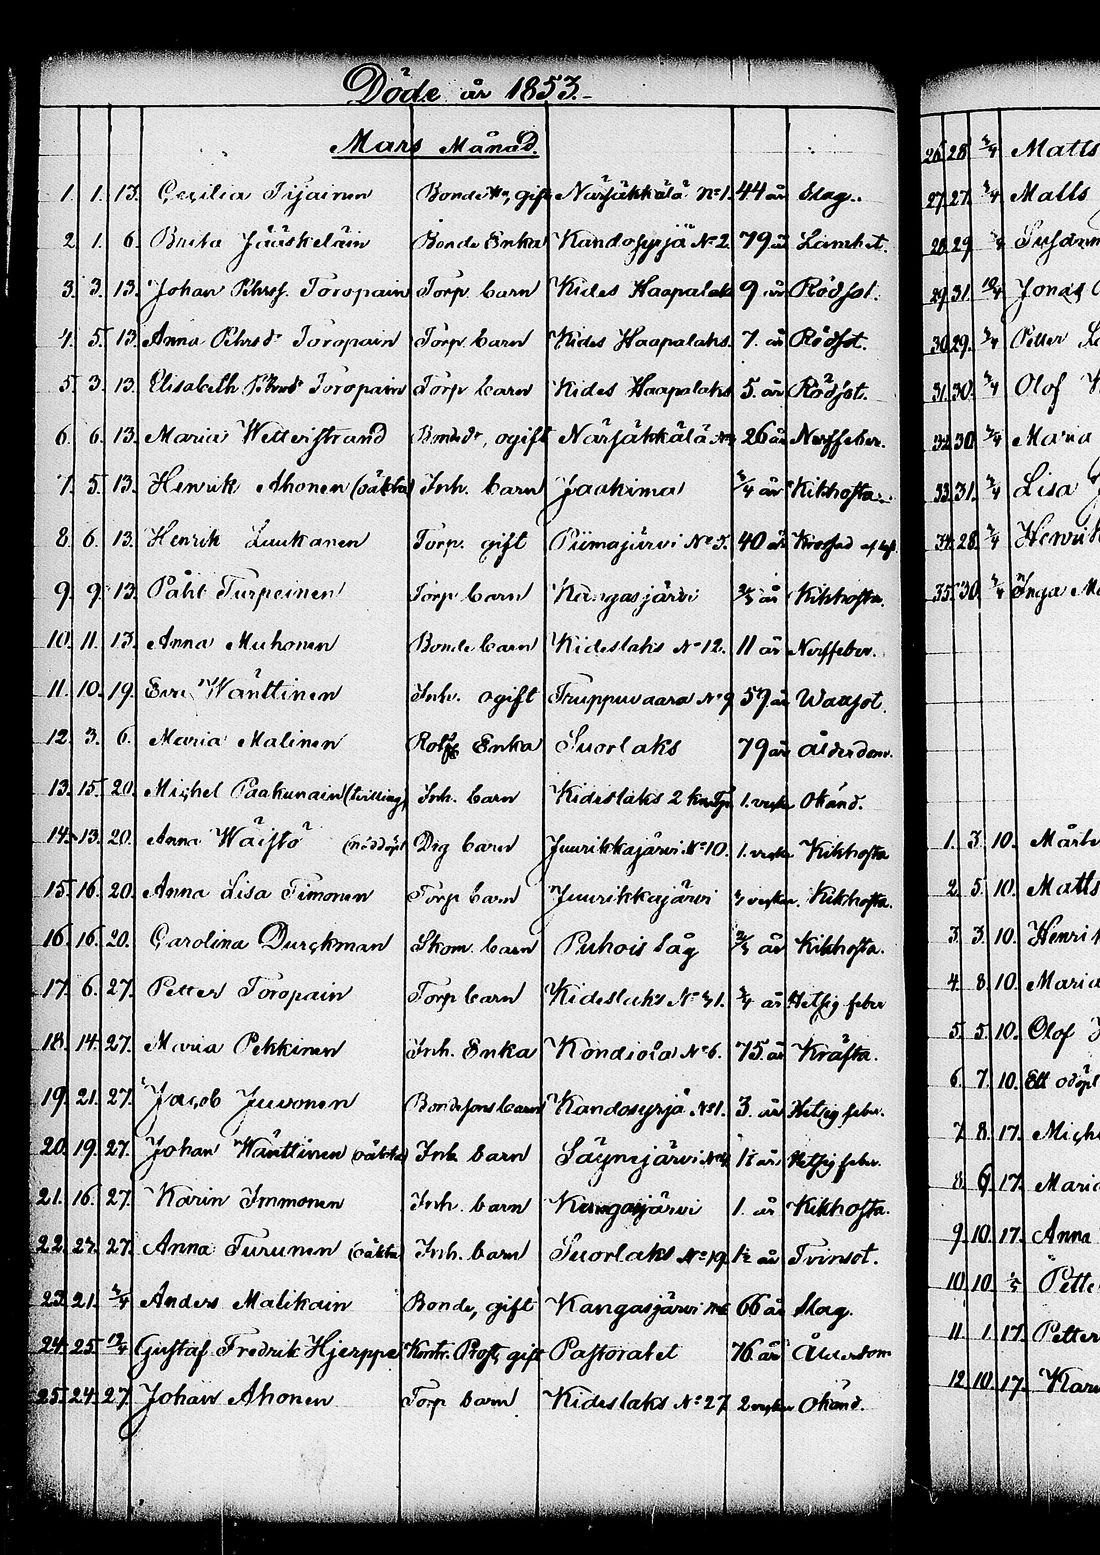 Döde år 1853.
Mars Månad.
1. 1. 13. Cecilia Tijainen Bonde gift Närsäkkälä No 1. 44 år Slag.
2. 1. 6. Brita Jääskeläin Bonde Enka Kandosyrjä No 2 79 år Lamhet.
3. 3. 13. Johan Pehrss. Toropain Torp. barn Kides Haapalaks 9 år Rödsot.
4. 5. 13. Anna Pehrsdr Toropain Torp. barn Kides Haapalaks. 7. år Rödsot.
5. 3. 13. Elisabeth Pehrsdr Toropain Torp barn Kides Haapalaks 5. år Rödsot.
6. 6. 13. Maria Wetterstrand Bondedr, ogift Närsäkkälä 26 år Nerffeber.
7. 5. 13. Henrik Ahonen (oäkta) Inh. barn Jaakima 3/4 år Kikhosta.
8. 6. 13. Henrik Luukanen Torp. gift Piimajärvi No 5. 40 år
9. 9. 13. Påhl Turpeinen Torp barn Kangasjärvi år Kikhosta.
10. 11. 13. Anna Muhonen Bonde barn Kideslaks No 12. 11 år Nerffeber.
11. 10. 19. Eva Wänttinen Inh. ogift Truppuvaara No 9 59 år Wattsot.
12. 3. 6. Maria Malinen Enka Suorlaks 79 år Ålderdom.
13. 15. 20. Michel Paakunain (tvilling) Inh. barn Kideslaks 2 1. vecka Okänd.
14. 13. 20. Anna Wäistö (nöddöpt) Drg barn Juurikkajärvi No 10. 1. vecka Kikhosta
15. 16. 20. Anna Lisa Timonen Torp barn Juurikkajärvi veckor. Kikhosta.
16. 16. 20. Carolina Durchman Skom. barn Puhois såg år Kikhosta.
17. 6. 27. Petter Toropain Torp barn Kideslaks No 31. 3/4 år Hetsig feber
18. 14. 27. Maria Pekkinen Inh. Enka Kondiola No 6. 75 år Kräfta.
19. 21. 27. Jacob Juvonen Bondesons barn Kandosyrjä No 1. 3. år Hetsig feber.
20. 19. 27. Johan Wänttinen (oäkta) Inh barn Säynejärvi No 4 år Hetsig feber.
21. 16. 27. Karin Immonen Inh. barn Kangasjärvi 1. år Kikhosta.
22. 27. Anna Turunen (oäkta) Inh. barn Suorlaks No 19. 1½ år Tvinsot.
23. 21. 3/4 Anders Malikain Bonde, gift Kangasjärvi 66 år Slag.
24. 25. Gustaf Fredrik Hjerppe Kontr. Prost, gift Pastoratet 76 år Ålderdom
25. 24. 27. Johan Ahonen Torp barn Kideslaks No 27 2 veckor Okänd.
26 28 3/4 Matts
27. 27. 3/4 Matts
28. 29. 3/4
29 31. 10/4 Jonas
30. 29. 3/4 Petter
31. 30. 3/4 Olof
32 30. 3/4 Maria
33. 31. 3/4 Lisa
34. 28. 3/4 Henrik
35. 30. 3/4 Inga
1. 3. 10.
2. 5. 10. Matts
3. 3. 10. Henrik
4. 8. 10. Maria
5. 5. 10. Olof
6. 7. 10. Ett
7. 8. 17.
8. 6. 17. Maria
9. 10. 17. Anna
10. 10.
11. 1. 17. Petter
12. 10. 17.